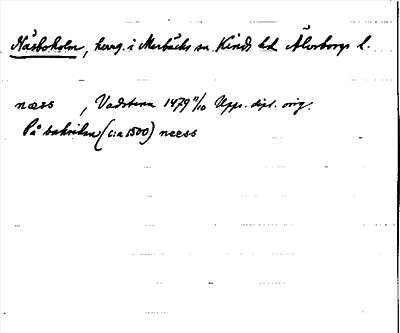 Näsboholm, herrg. i Mårbäcks sn Kinds hd Älvsborgs l.
næss , Vadstena 1479 11/10 Upps. dipl. orig.
På baksidan (c:a 1500) neess